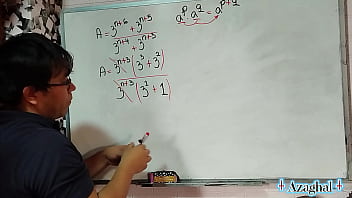 A = 3^{n+6} + 3^{n+5}
3^{n+4} + 3^{n+3}
a^p a^q = a^{p+q}
A = 3^{n+3} (3^3 + 3^2)
3^{n+3} (3^1 + 1)
Azaghal